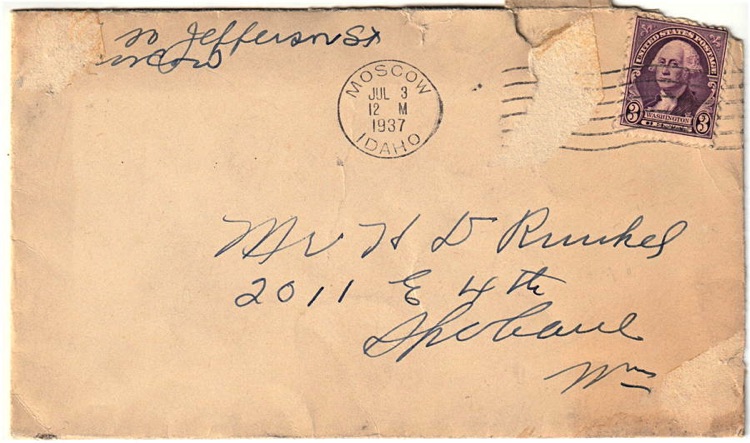 so Jefferson St
MOSCOW
JUL 3
12 M
1937
IDAHO
UNITED STATES POSTAGE
3 WASHINGTON 3
Mr H D Runkel
2011 E 4th
Spokane
Wn